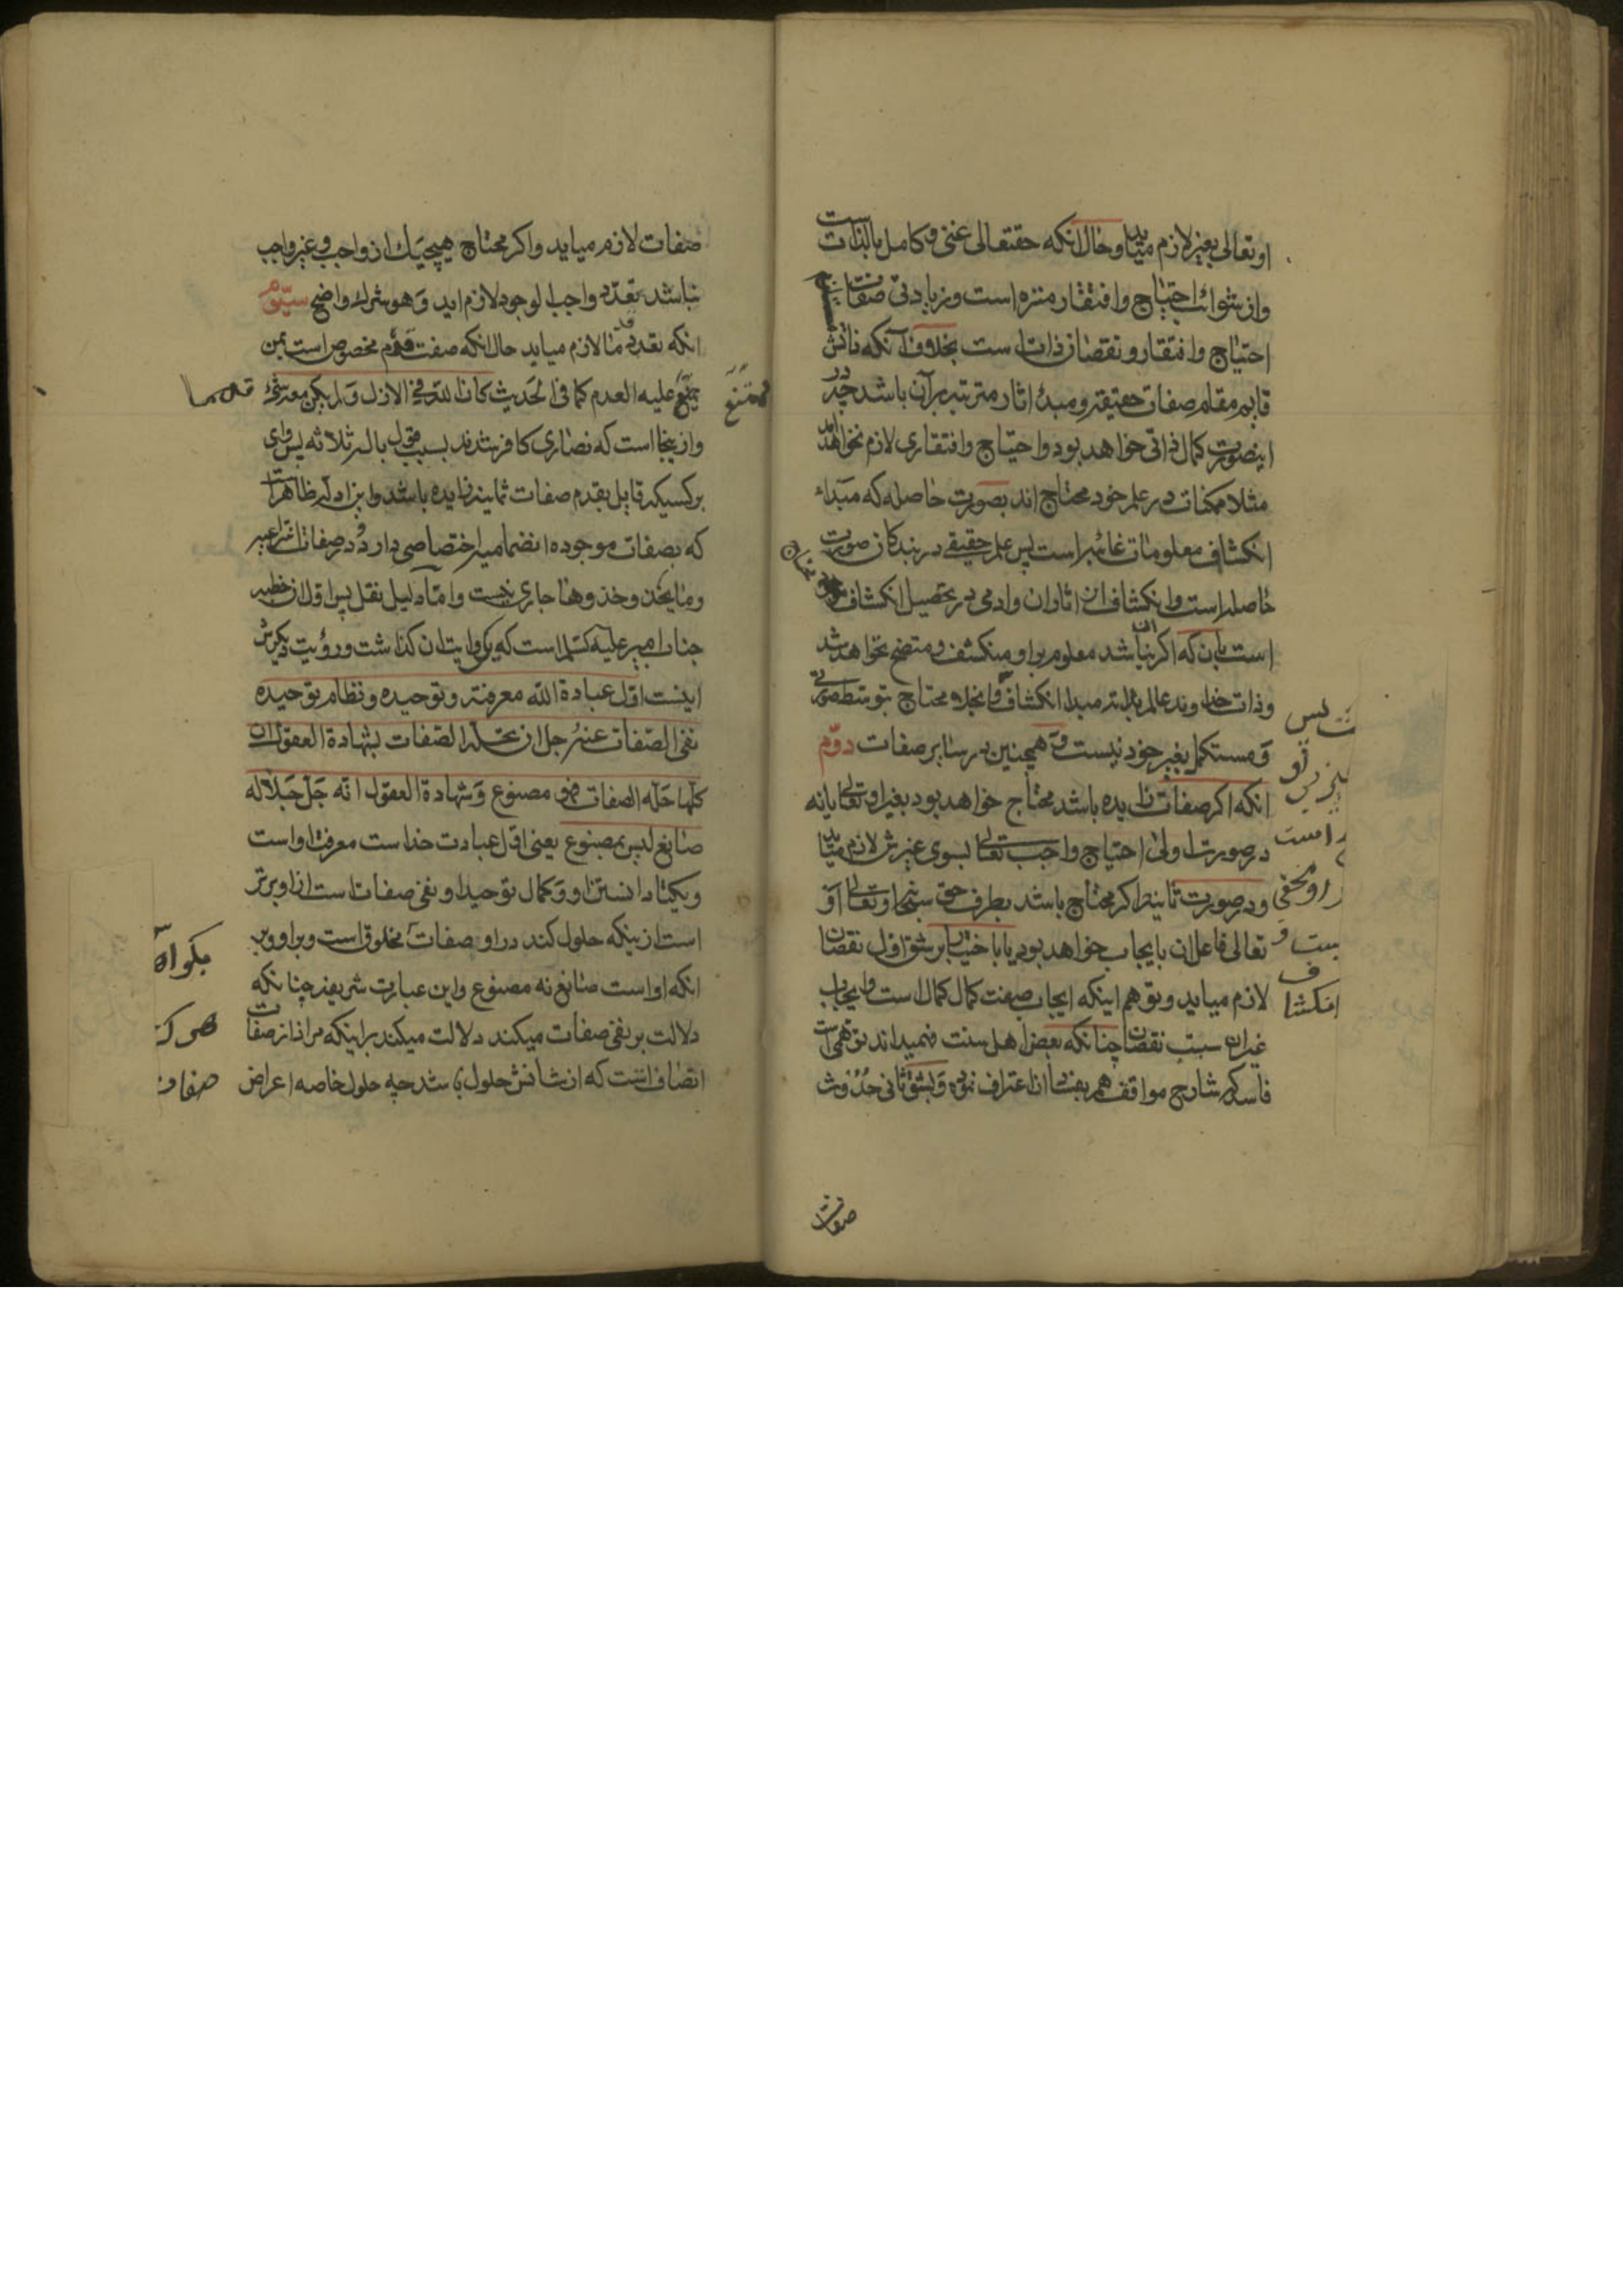 او تعالی بغیر لازم میاید و حال انکه حقتعالی غنی و کامل بالذات است
و از شوائب احتیاج و افتقار منزه است و زیادتی صفات
احتیاج و افتقار و نقصان ذات است بخلاف آنکه ذاتش
قایم مقام صفات حقیقیه و مبدأ اثار مترتبه بر آن باشد چه در
اینصورت کمال ذاتی خواهد بود و احتیاج و افتقاری لازم نخواهد آمد
مثلا ممکنات در علم خود محتاج اند بصورت حاصله که مبداء
انکشاف معلومات غائبه است پس علم حقیقی در بندکان صورت
حاصله است و انکشاف از اثار ان و ادمی در تحصیل انکشاف
است بان که اکر ان نباشد معلوم بر او منکشف و متضح نخواهد شد
و ذات خداوند عالم بذاته مبدا انکشاف و انجلاء محتاج بتوسط صورتی
و مستکمل بغیر خود نیست و همچنین در سایر صفات دوّم
انکه اکر صفات زایده باشد محتاج خواهد بود بغیر او تعالی یا نه
در صورت اولی احتیاج واجب تعالی بسوی غیرش لازم میاید
و در صورت ثانیه اکر محتاج باشد بطرف حق سبحانه و تعالی او
تعالی فاعل ان بایجاب خواهد بود یا باختیار بر شق اول نقصان
لازم میاید و توهم اینکه ایجاب صفت کمال کمال است و ایجاب
غیر ان سبب نقصان چنانکه بعض اهل سنت فهمیداند توهمی است
فاسد که شارح مواقف هم بفساد ان اعتراف نموده و بشق ثانی حدوث
ت پس
راست
و مخفی
انکشاف
صفات
صفات لازم میاید و اکر محتاج هیچیک از واجب و غیر واجب
نباشد تعدد واجب الوجود لازم اید و هو شرک واضح سیّوم
انکه تعدد قدما لازم میاید حال انکه صفت قدم مخصوص است بمن
یمتنع علیه العدم کما فی الحدیث کان الله فی الازل و لم یکن معه شیء
و از ینجا است که نصاری کافر شدند بسبب قول بالهه ثلاثه پس وای
بر کسیکه قایل بقدم صفات ثمانیه زایده باشد و این ادله ظاهرا
که بصفات موجوده انضمامیه اختصاصی دارد و در صفات انتزاعیه
و ما یحذو حذوها جاری نیست و اما دلیل نقل پس اول از خطبه
جناب امیر علیه السلم است که یک روایت ان کذاشت و رؤیت دیکرش
اینست اول عبادة الله معرفته و توحیده و نظام توحیده
نفی الصّفات عنه جلّ ان تحلّه الصّفات بشهادة العقول ان
کلّما حلّه الصفات فهو مصنوع و شهادة العقول انّه جلّ جلاله
صانع لیس بمصنوع یعنی اول عبادت خداست معرفت او است
و یکتا دانستن او و کمال توحید او نفی صفات است از او برتر
است از ینکه حلول کند در او صفات مخلوق است و بر او و بر
انکه او است صانع نه مصنوع و این عبارت شریفه چنانکه
دلالت بر نفی صفات میکند دلالت میکند بر اینکه مراد از صفات
اتصاف انست که از شانش حلول باشد چه حلول خاصه اعراض
ممتنع
قدما